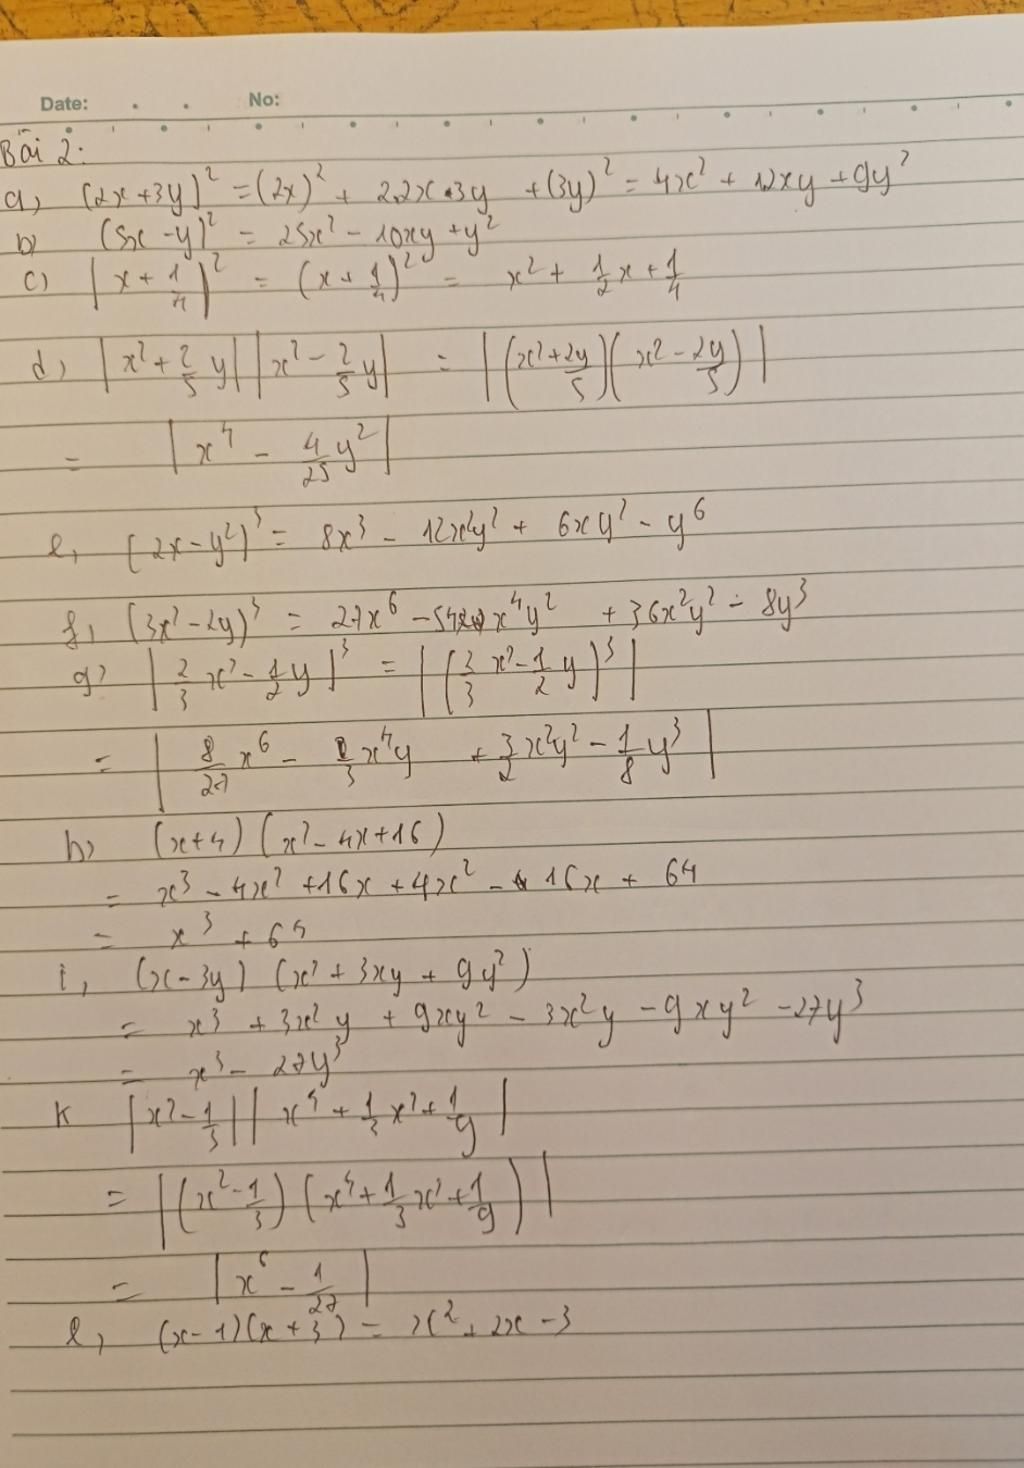 Date: . . No:
Bài 2:
a, (2x + 3y)² = (2x)² + 2.2x.3y + (3y)² = 4x² + 12xy + 9y²
b) (5x - y)² = 25x² - 10xy + y²
c) |x + 1/4|² = (x + 1/4)² = x² + 1/2 x + 1/4
d, |x² + 2/5 y| |x² - 2/5 y| = |(x² + 2y/5)(x² - 2y/5)|
= |x⁴ - 4/25 y²|
e, (2x - y²)³ = 8x³ - 12x²y² + 6xy² - y⁶
f, (3x² - 2y)³ = 27x⁶ - 54x⁴y² + 36x²y² - 8y³
g) |2/3 x² - 1/2 y|³ = |(2/3 x² - 1/2 y)³|
= |8/27 x⁶ - 2/3 x⁴y + 3/2 x²y² - 1/8 y³|
h) (x+4) (x² - 4x + 16)
= x³ - 4x² + 16x + 4x² - 16x + 64
= x³ + 64
i, (x - 3y) (x² + 3xy + 9y²)
= x³ + 3x²y + 9xy² - 3x²y - 9xy² - 27y³
= x³ - 27y³
k |x² - 1/3| |x⁴ + 1/3 x² + 1/9|
= |(x² - 1/3) (x⁴ + 1/3 x² + 1/9)|
= |x⁶ - 1/27|
l, (x - 1)(x + 3) = x² + 2x - 3